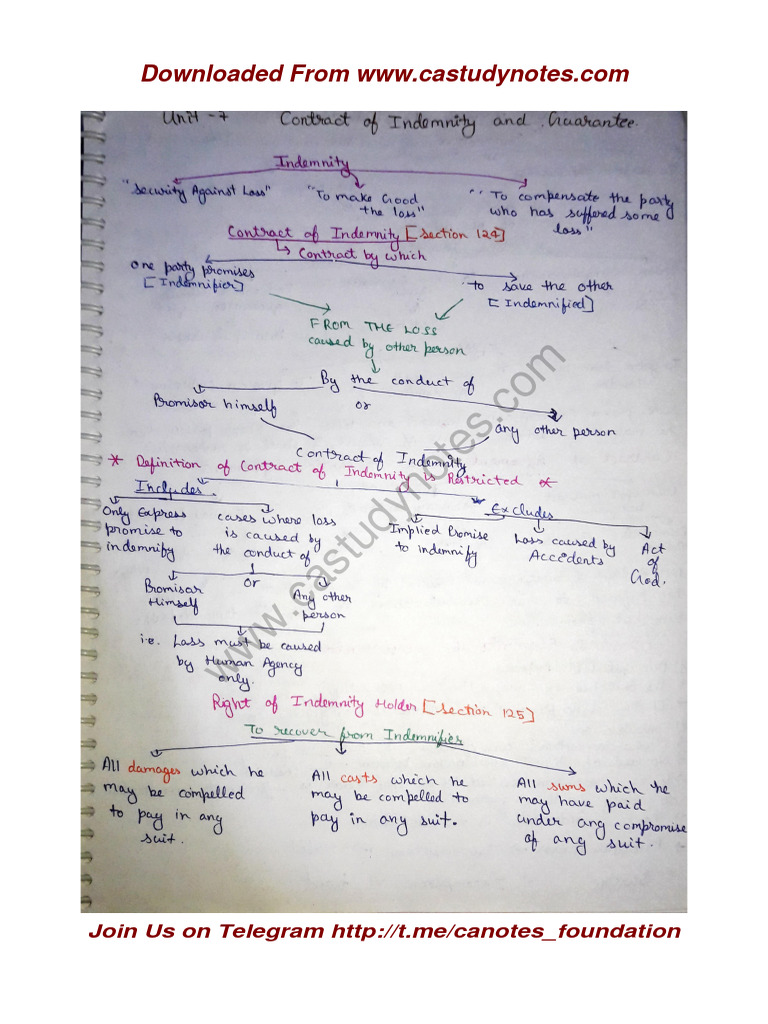 Downloaded From www.castudynotes.com
Unit -7 Contract of Indemnity and Guarantee.
Indemnity
"Security Against Loss" "To make Good the loss" "To compensate the party who has suffered some loss"
Contract of Indemnity [Section 124]
↳ Contract by which
one party promises [Indemnifier]
to save the other [Indemnified]
FROM THE LOSS
caused by other person
By the conduct of
Promisor himself or any other person
Contract of Indemnity
* Definition of Contract of Indemnity is Restricted *
Includes
Excludes
Only Express promise to indemnify
cases where loss is caused by the conduct of
Implied Promise to indemnify
Loss caused by Accidents
Act of God.
Promisor Himself or Any other person
i.e. Loss must be caused
by Human Agency
only.
Right of Indemnity Holder [Section 125]
To recover from Indemnifier
All damages which he
may be compelled
to pay in any
suit.
All costs which he
may be compelled to
pay in any suit.
All sums which he
may have paid
under any compromise
of any suit.
www.castudynotes.com
Join Us on Telegram http://t.me/canotes_foundation